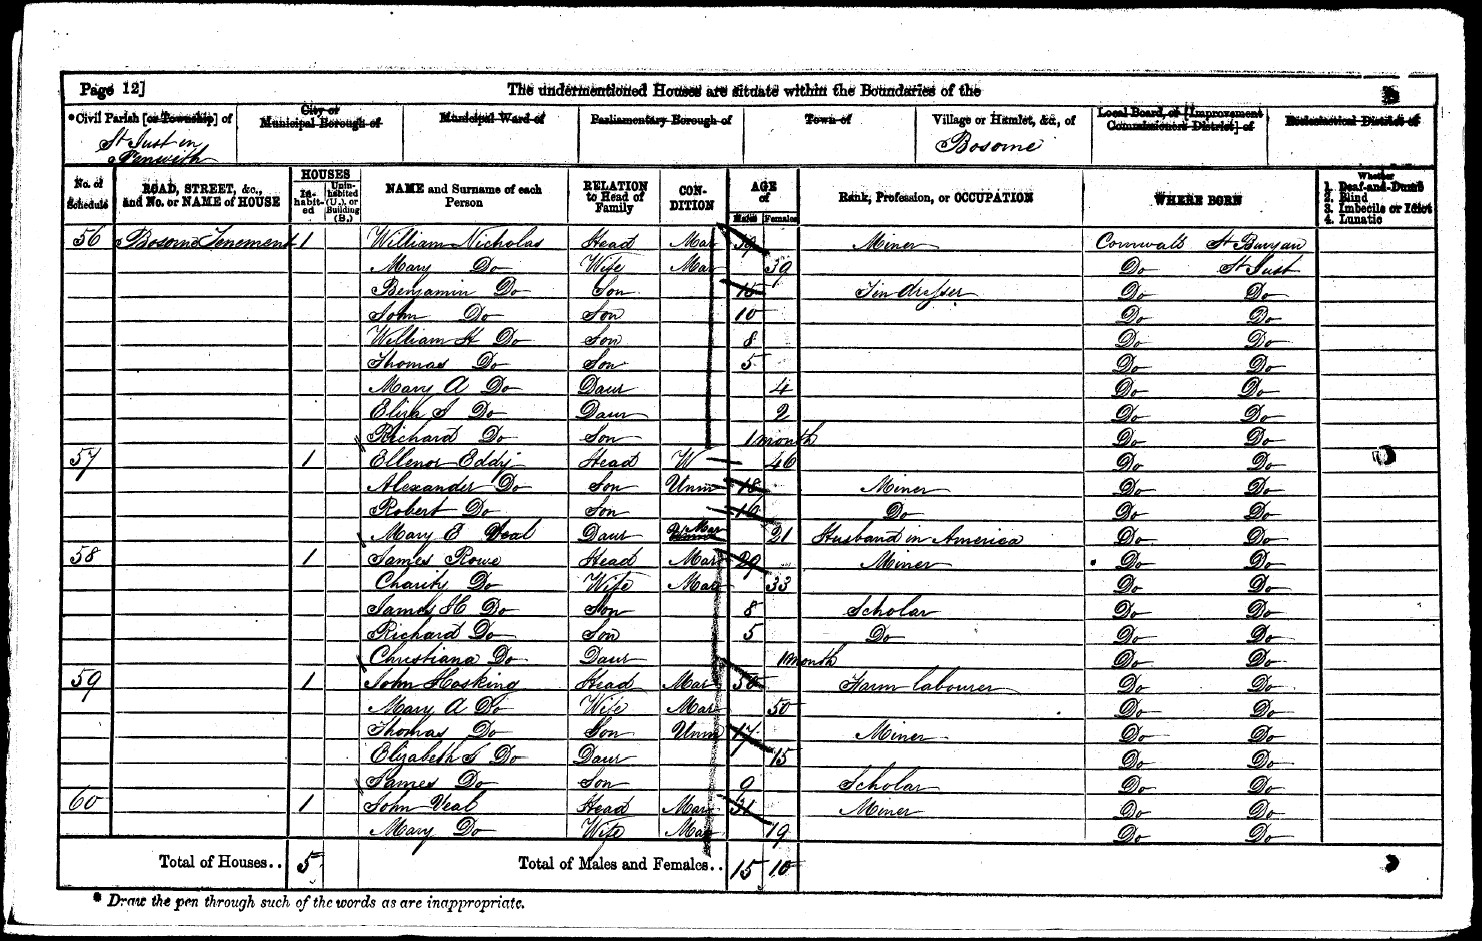 Page 12]
The undermentioned Houses are situate within the Boundaries of the
*Civil Parish [or Township] of City or Municipal Borough of Municipal Ward of Parliamentary Borough of Town of Village or Hamlet, &c., of Local Board, or [Improvement Commissioners District] of Ecclesiastical District of
St Just in Penwith Bosorne
No. of Schedule ROAD, STREET, &c., and No. or NAME of HOUSE HOUSES In-habit-ed Unin-habited (U.), or Building (B.) NAME and Surname of each Person RELATION to Head of Family CON-DITION AGE of Males Females Rank, Profession, or OCCUPATION WHERE BORN Whether 1. Deaf-and-Dumb 2. Blind 3. Imbecile or Idiot 4. Lunatic
56 Bosorne Tenement 1 William Nicholas Head Mar 39 Miner Cornwall St Buryan
Mary Do Wife Mar 39 Do St Just
Benjamin Do Son 15 Tin dresser Do Do
John Do Son 10 Do Do
William H Do Son 8 Do Do
Thomas Do Son 5 Do Do
Mary A Do Daur 4 Do Do
Eliza J Do Daur 2 Do Do
Richard Do Son 1 month Do Do
57 1 Ellenor Eddy Head W 46 Do Do
Alexander Do Son Unm 18 Miner Do Do
Robert Do Son 16 Do Do Do
Mary E Veal Daur Mar 21 Husband in America Do Do
58 1 James Rowe Head Mar 29 Miner Do Do
Charity Do Wife Mar 33 Do Do
James H Do Son 8 Scholar Do Do
Richard Do Son 5 Do Do Do
Christiana Do Daur 1 month Do Do
59 1 John Hosking Head Mar 50 Farm labourer Do Do
Mary A Do Wife Mar 50 Do Do
Thomas Do Son Unm 17 Miner Do Do
Elizabeth J Do Daur 15 Do Do
James Do Son 9 Scholar Do Do
60 1 John Veal Head Mar 31 Miner Do Do
Mary Do Wife Mar 19 Do Do
Total of Houses.. 5 Total of Males and Females.. 15 10
* Draw the pen through such of the words as are inappropriate.